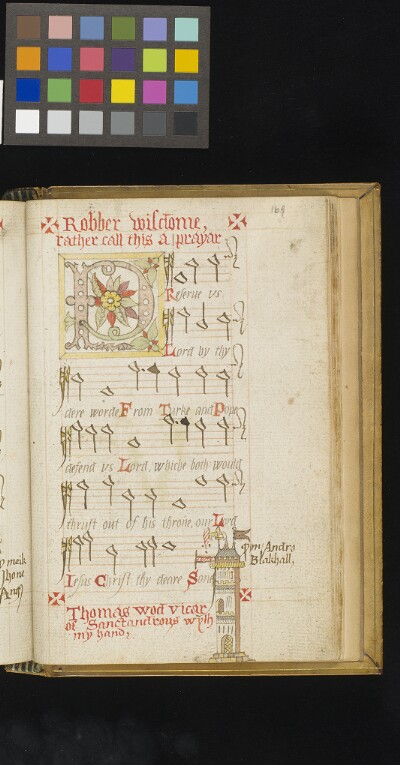 Robber wisdome,
rather call this a prayar
Reserue vs
Lord by thy
dere worde From Turke and Pope
defend vs Lord, whiche both would
thrust out of his throne, our Lord
Iesus Christ thy deare Sone
Andro
Blakhall,
Thomas wod vicar
of Sanctandrous wyth
my hand: